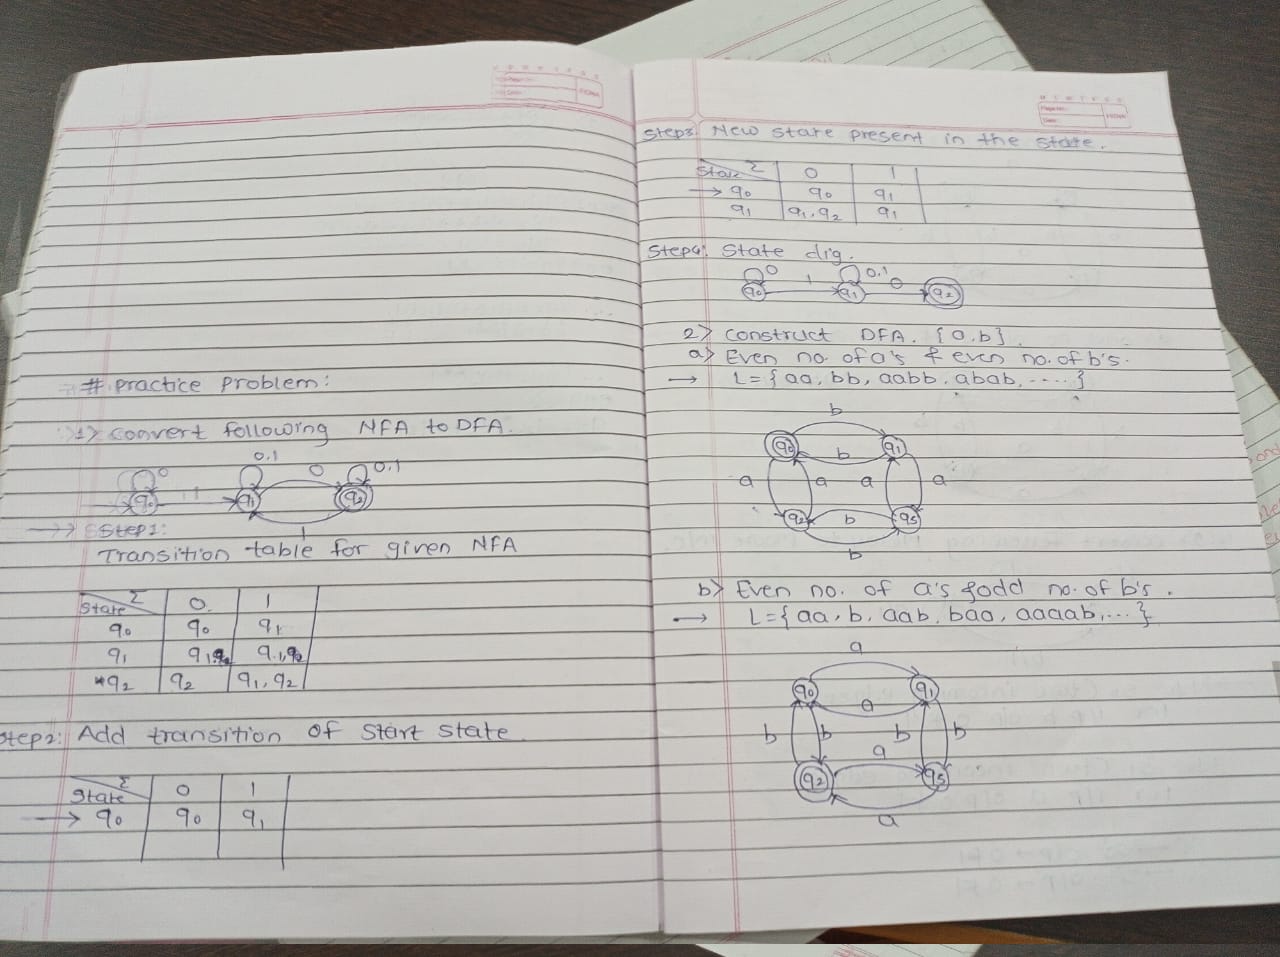 # practice problem:
1> convert following NFA to DFA.
0
0,1
0
0,1
1
q0
q1
q2
1
Step1:
Transition table for given NFA
State Σ 0 1
q0 q0 q1
q1 q1,q2 q1,q2
*q2 q2 q1,q2
Step2: Add transition of start state
State Σ 0 1
→ q0 q0 q1
Step3 New state present in the state.
State Σ 0 1
→ q0 q0 q1
q1 q1,q2 q1
Step4: State dig.
0
1
0,1
0
q0
q1
q2
2> construct DFA. {a,b}
a> Even no. of a's & even no. of b's.
→ L={aa, bb, aabb, abab, ....}
b
q0
q1
b
a
a
a
a
q2
b
b
b> Even no. of a's & odd no. of b's.
→ L={aa, b, aab, baa, aaaab,...}
a
q0
q1
a
b
b
b
b
a
q2
a